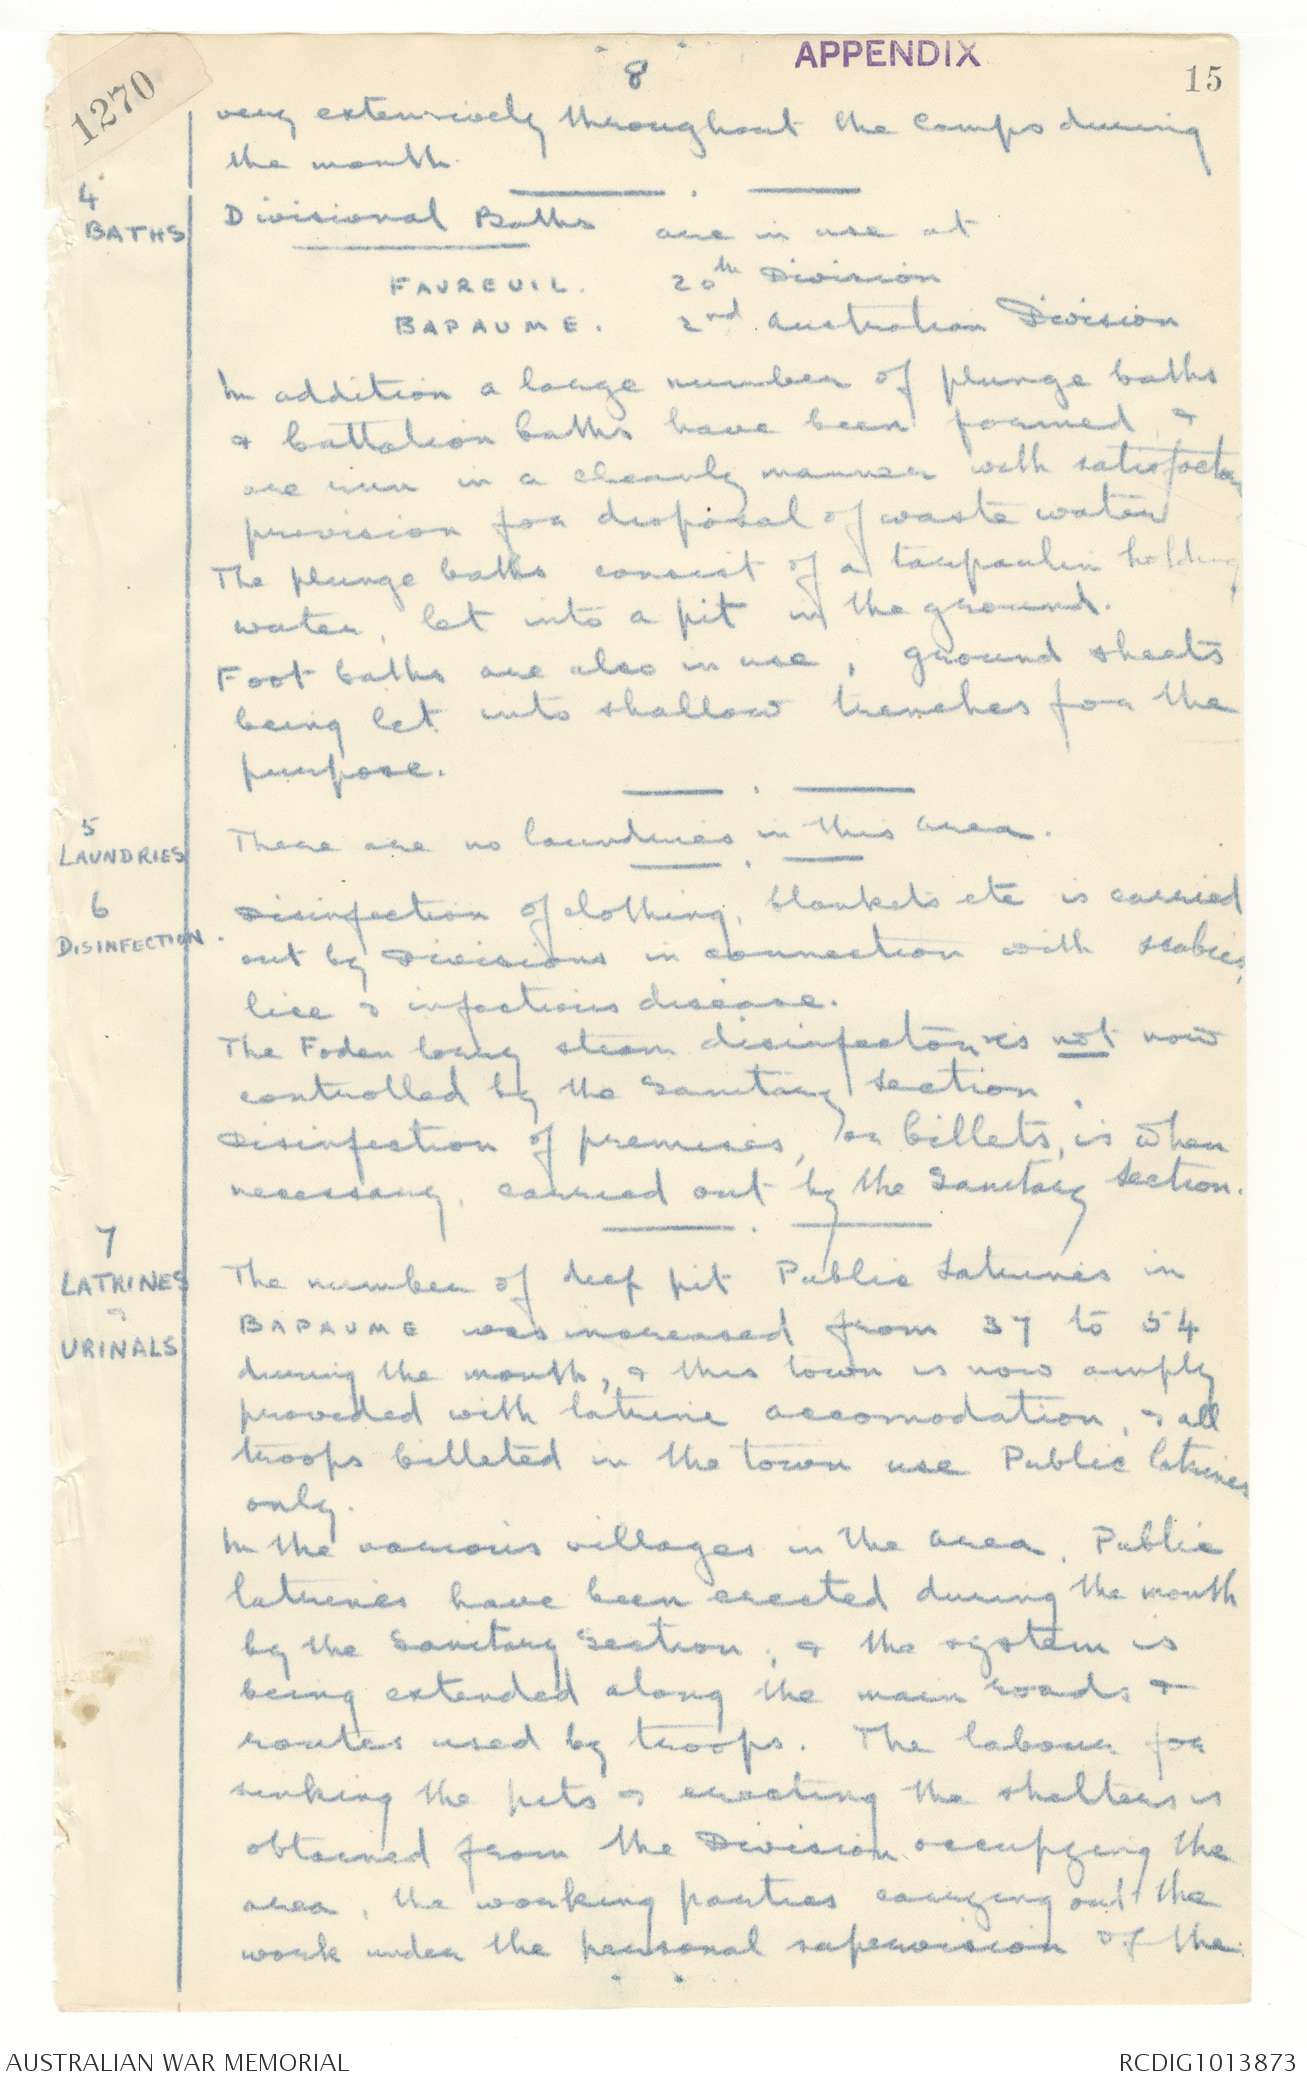 1270
8
APPENDIX
15
very extensively throughout the camps during
the month.
4
BATHS
Divisional Baths are in use at
FAVREUIL. 20th Division
BAPAUME. 2nd Australian Division
In addition a large number of plunge baths
& battalion baths have been formed &
are run in a cleanly manner with satisfactory
provision for disposal of waste water
The plunge baths consist of a tarpaulin holding
water, let into a pit in the ground.
Foot baths are also in use, ground sheets
being let into shallow trenches for the
purpose.
5
LAUNDRIES
There are no laundries in this area.
6
DISINFECTION.
Disinfection of clothing, blankets etc is carried
out by Divisions in connection with scabies,
lice & infectious disease.
The Foden lorry steam disinfector is not now
controlled by the Sanitary Section.
Disinfection of premises, or billets, is when
necessary, carried out by the Sanitary Section.
7
LATRINES
&
URINALS
The number of deep pit Public Latrines in
BAPAUME was increased from 37 to 54
during the month, & this town is now amply
provided with latrine accomodation, & all
troops billeted in the town use Public latrines
only.
In the various villages in the area, Public
latrines have been erected during the month
by the Sanitary Section, & the system is
being extended along the main roads &
routes used by troops. The labour for
sinking the pits & erecting the shelters is
obtained from the Division occupying the
area, the working parties carrying out the
work under the personal supervision of the
AUSTRALIAN WAR MEMORIAL
RCDIG1013873